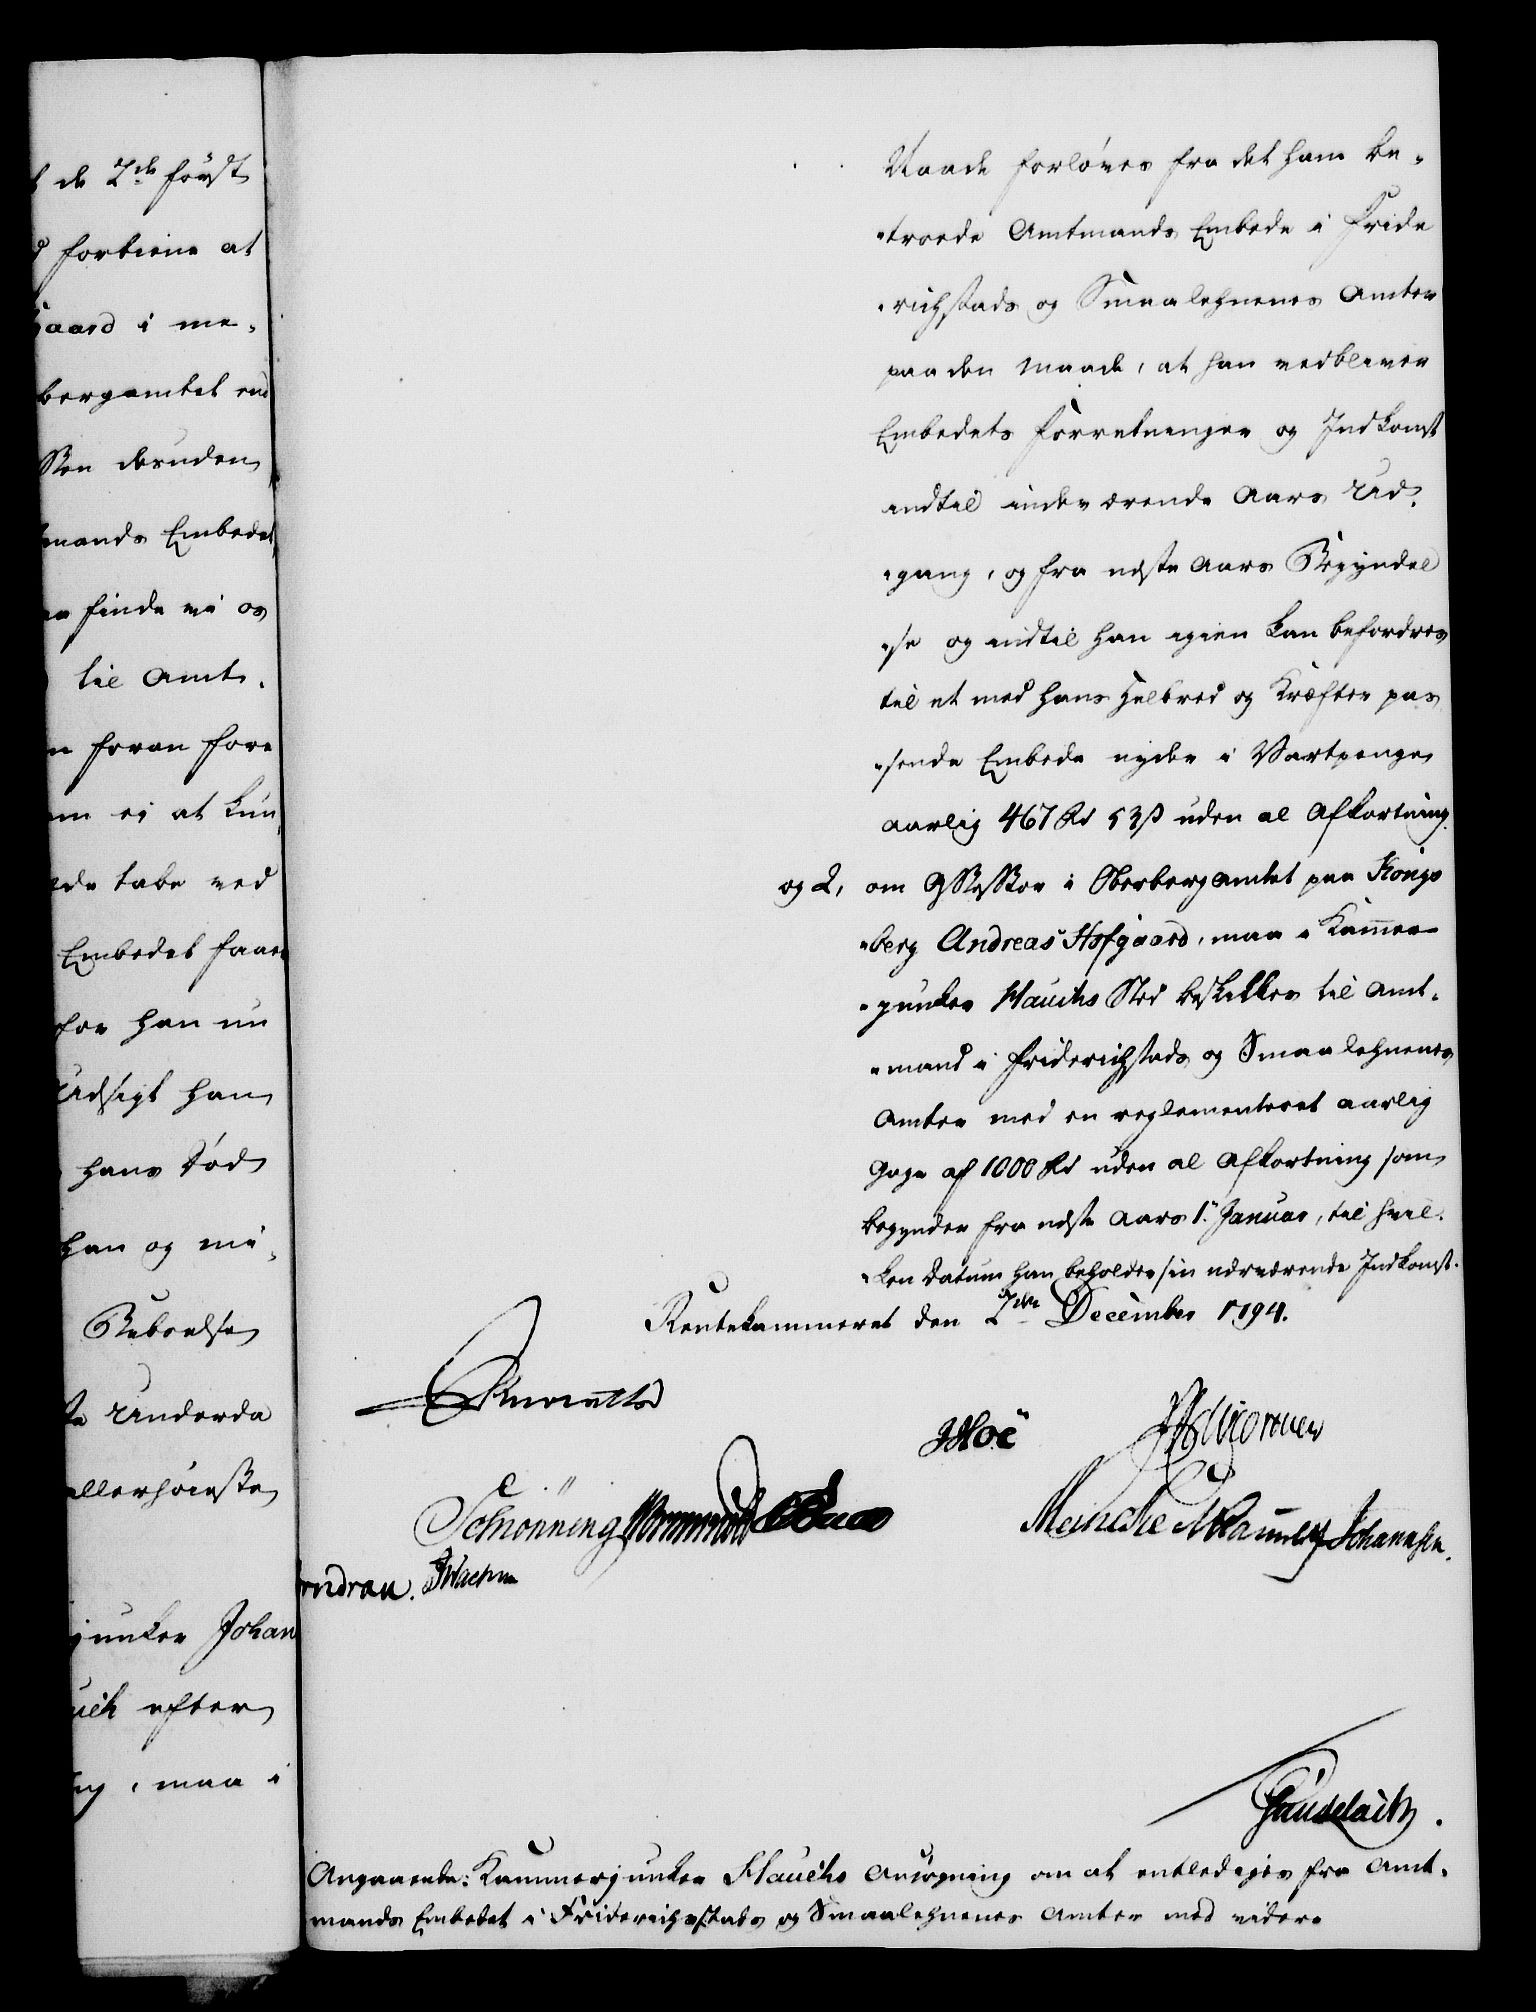 t de 2de först
d fortiene at
gaard i me-
bergamtet end
Ken desuden
mands Embedet
finde vi os
til Amt-
n foran fore
am ei at kun
de tabe ved
Embedet faaer
for han nu
Udsigt han
hans Död
han og mi-
Skabnelse
te Underda
allerhöieste
junker Johan
uch efter
ng, maa i
Naade forlöves fra det ham be-
-troede Amtmands Embede i Fride
-richstads og Smaalehnenes Amter
paa den Maade, at han vedbliver
Embedets Forretninger og Indkomst
indtil indeværende Aars Ud-
-gang, og fra næste Aars Begyndel
-se og indtil han igien kan befordres
til et med hans Helbred og Kræfter pas
-sende Embede nyder i Vartpenge
aarlig 467 Rd 53 ß uden al Afkortning.
og 2, om Assessor i Oberbergamtet paa Kongs
-berg Andreas Hofgaard, maa i Kammer
-junker Hauchs Sted beskikkes til Amt-
-mand i Friderichstads og Smaalehnenes
Amter med en reglementeret aarlig
Gage af 1000 Rd uden al Afkortning som
begynder fra næste Aars 1. Januar, til hvil-
-ken Datum han beholder sin nærværende Indkomst.
Rentekammeret den 2den December 1794.
JHoë
Schönning Meincke Johannsen.
Wendrau.
Angaaende: Kammerjunker Hauchs Ansögning om at entlediges fra Amt-
mands Embedet i Friderichsstads og Smaalehnenes Amter med videre